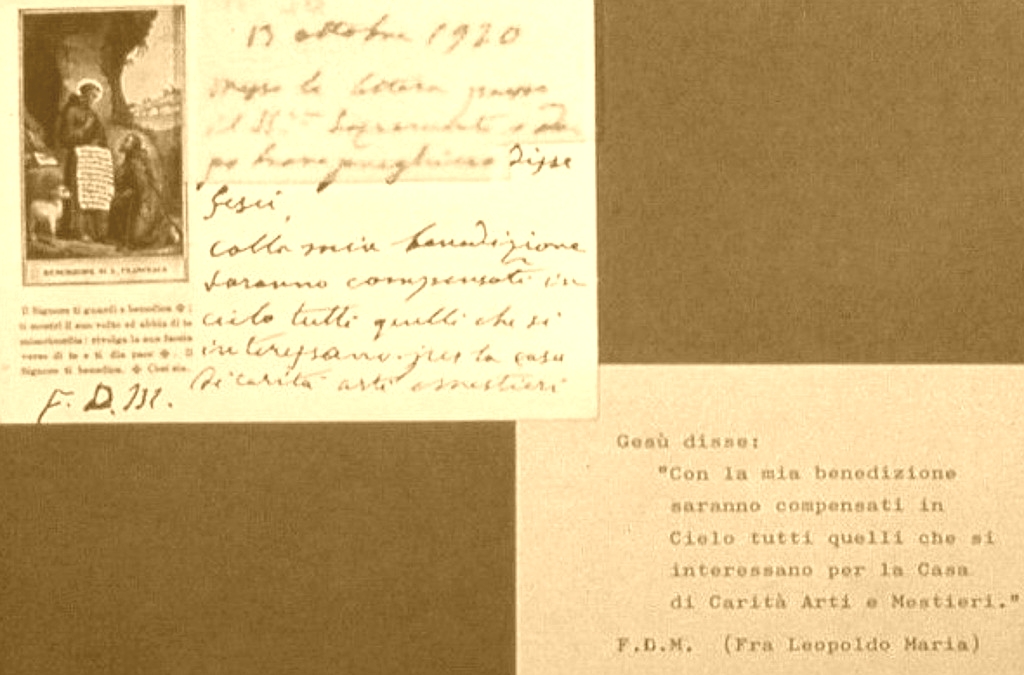 13 ottobre 1920
messo la lettera presso
il SS.mo Sagramento e do
po breve preghiera disse
Gesù,
colla mia benedizione
saranno compensati in
cielo tutti quelli che si
interessano per la casa
di carità arti e mestieri
BENEDIZIONE DI S. FRANCESCO
Il Signore ti guardi e benedica ✠ :
ti mostri il suo volto ed abbia di te
misericordia : rivolga la sua faccia
verso di te e ti dia pace ✠. Il
Signore ti benedica. ✠ Così sia.
F. D. M.
Gesù disse:
"Con la mia benedizione
saranno compensati in
Cielo tutti quelli che si
interessano per la Casa
di Carità Arti e Mestieri."
F.D.M. (Fra Leopoldo Maria)